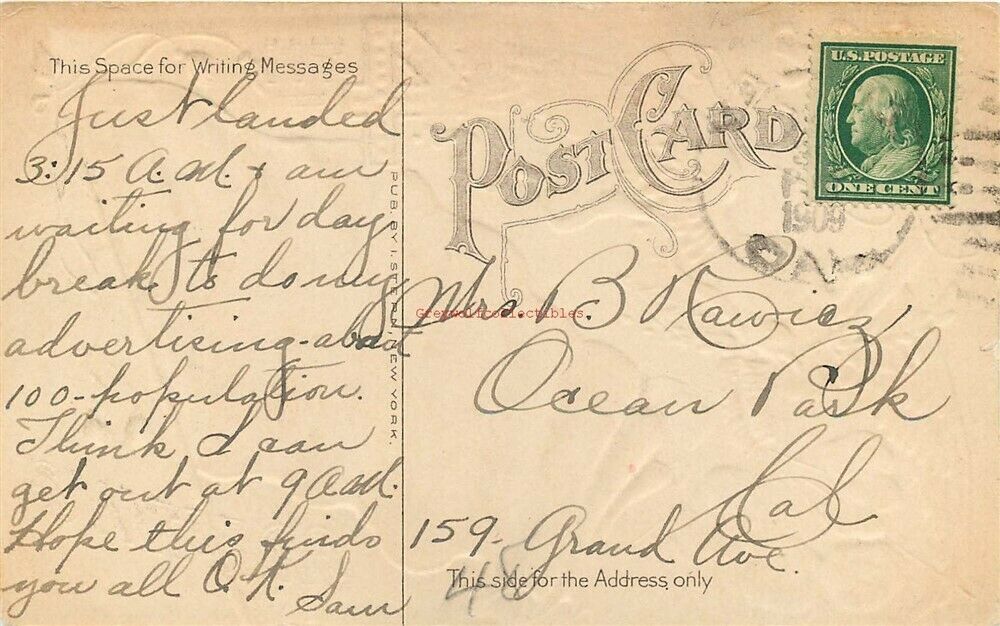 This Space for Writing Messages
Just landed
3:15 A.M. & am
waiting for day
break to do my
advertising - about
100 - population.
Think I can
get out at 9 A.M.
Hope this finds
you all O.K.
Sam
PUB BY NEW YORK.
POST CARD
U.S. POSTAGE
ONE CENT
1909
CAL
Mrs B. Rawicz
Ocean Park
Cal
159 - Grand Ave.
48
This side for the Address only
Greywolfcollectibles.